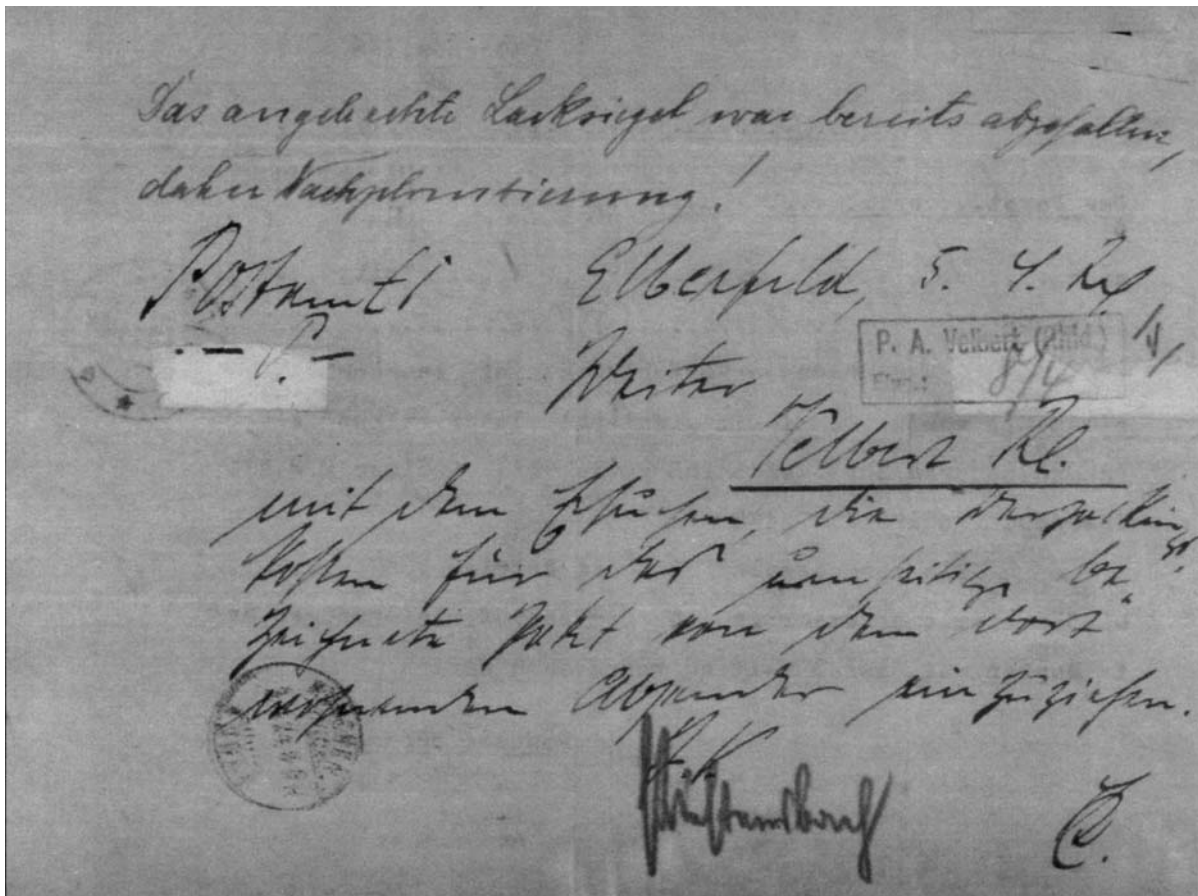 Das angebrachte Lacksiegel war bereits abgefallen,
daher Nachplombierung!
Postamt Elberfeld, 5. 4.
P. A. Velbert (Rhld.)
8/4
P. Weiter
Velbert Rl.
mit dem Ersuchen, die Verpackungs-
kosten für das umseitig be-
zeichnete Paket von dem dort
wohnenden Absender einzuziehen.